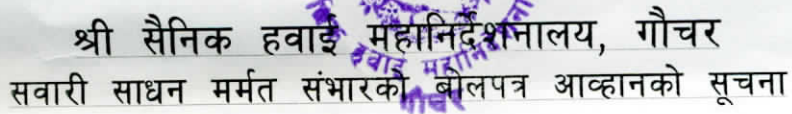 श्री सैनिक हवाई महानिर्देशनालय, गौचर
सवारी साधन मर्मत संभारको बोलपत्र आव्हानको सूचना